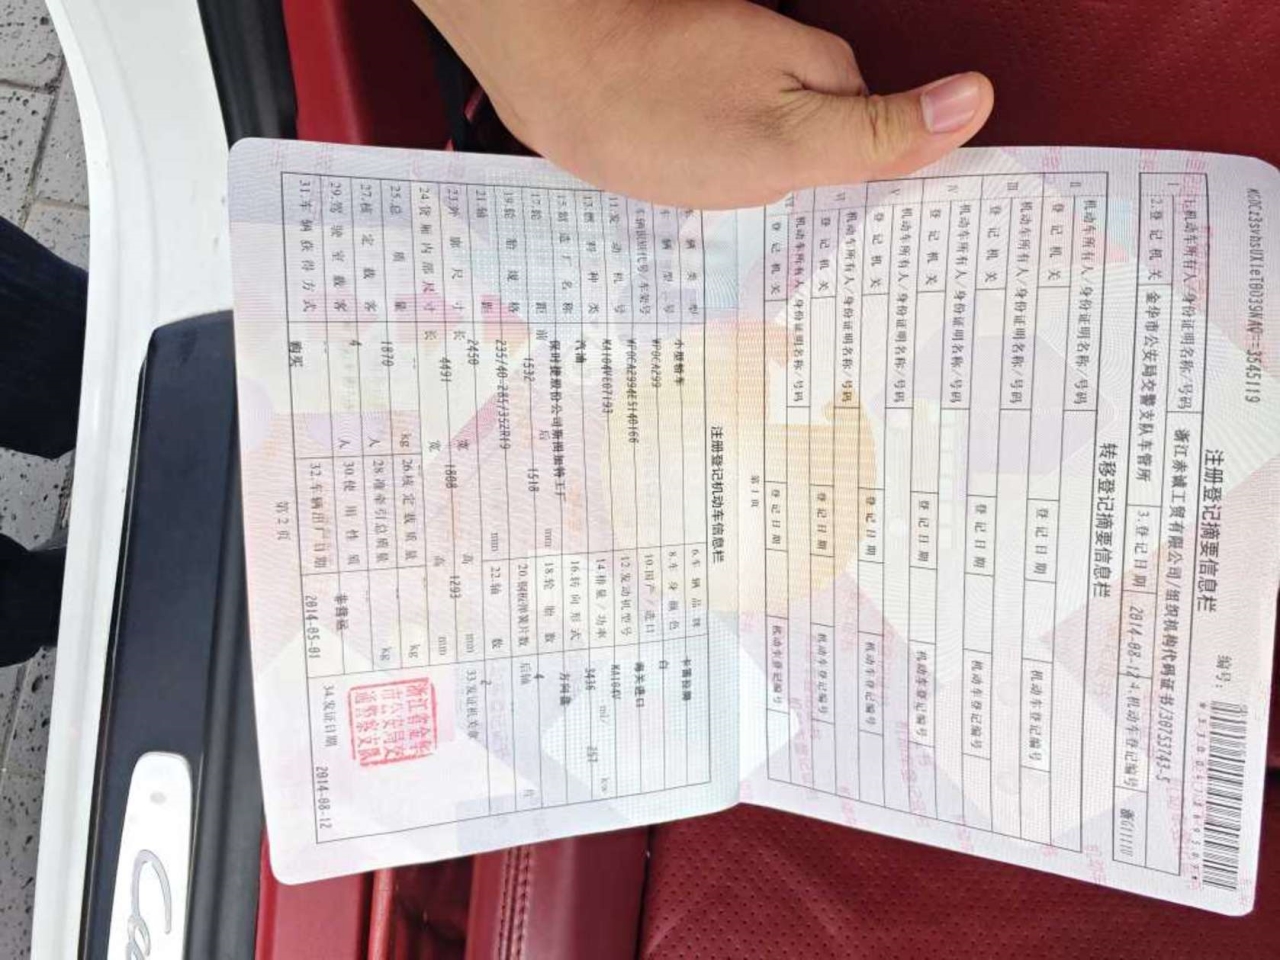 注册登记摘要信息栏
编号:
1.机动车所有人/身份证明名称/号码 浙江赤诚工贸有限公司/组织机构代码证书/30753743-5
2.登记机关 金华市公安局交警支队车管所 3.登记日期 2014-08-12 4.机动车登记编号
转移登记摘要信息栏
II 机动车所有人/身份证明名称/号码
登记机关 登记日期 机动车登记编号
III 机动车所有人/身份证明名称/号码
登记机关 登记日期 机动车登记编号
IV 机动车所有人/身份证明名称/号码
登记机关 登记日期 机动车登记编号
V 机动车所有人/身份证明名称/号码
登记机关 登记日期 机动车登记编号
VI 机动车所有人/身份证明名称/号码
登记机关 登记日期 机动车登记编号
VII 机动车所有人/身份证明名称/号码
登记机关 登记日期 机动车登记编号
第1页
注册登记机动车信息栏
辆类型 小型轿车 6.车辆品牌
辆型号 WP0CA299 8.车身颜色 白
车辆识别代号/车架号 10.国产/进口 海关进口
11.发动机号 MA104VE07193 12.发动机型号 MA104V
13.燃料种类 汽油 14.排量/功率 3436 ml/ kw
15.制造厂名称 保时捷股份公司斯图加特工厂 16.转向形式 方向盘
17.轮距 前 1532 后 1518 mm 18.轮胎数 4
19.轮胎规格 20.钢板弹簧片数 后轴 片
21.轴距 2450 mm 22.轴数 2
23.外廓尺寸 长 4491 宽 1808 高 1293 mm
33.发证机关章
24.货厢内部尺寸 长 宽 高 mm
25.总质量 1870 kg 26.核定载质量 kg
27.核定载客 4 人 28.准牵引总质量 kg
29.驾驶室载客 人 30.使用性质 非营运
31.车辆获得方式 购买 32.车辆出厂日期 2014-05-01
34.发证日期 2014-08-12
第2页
浙江省金华
市公安局交
通警察支队